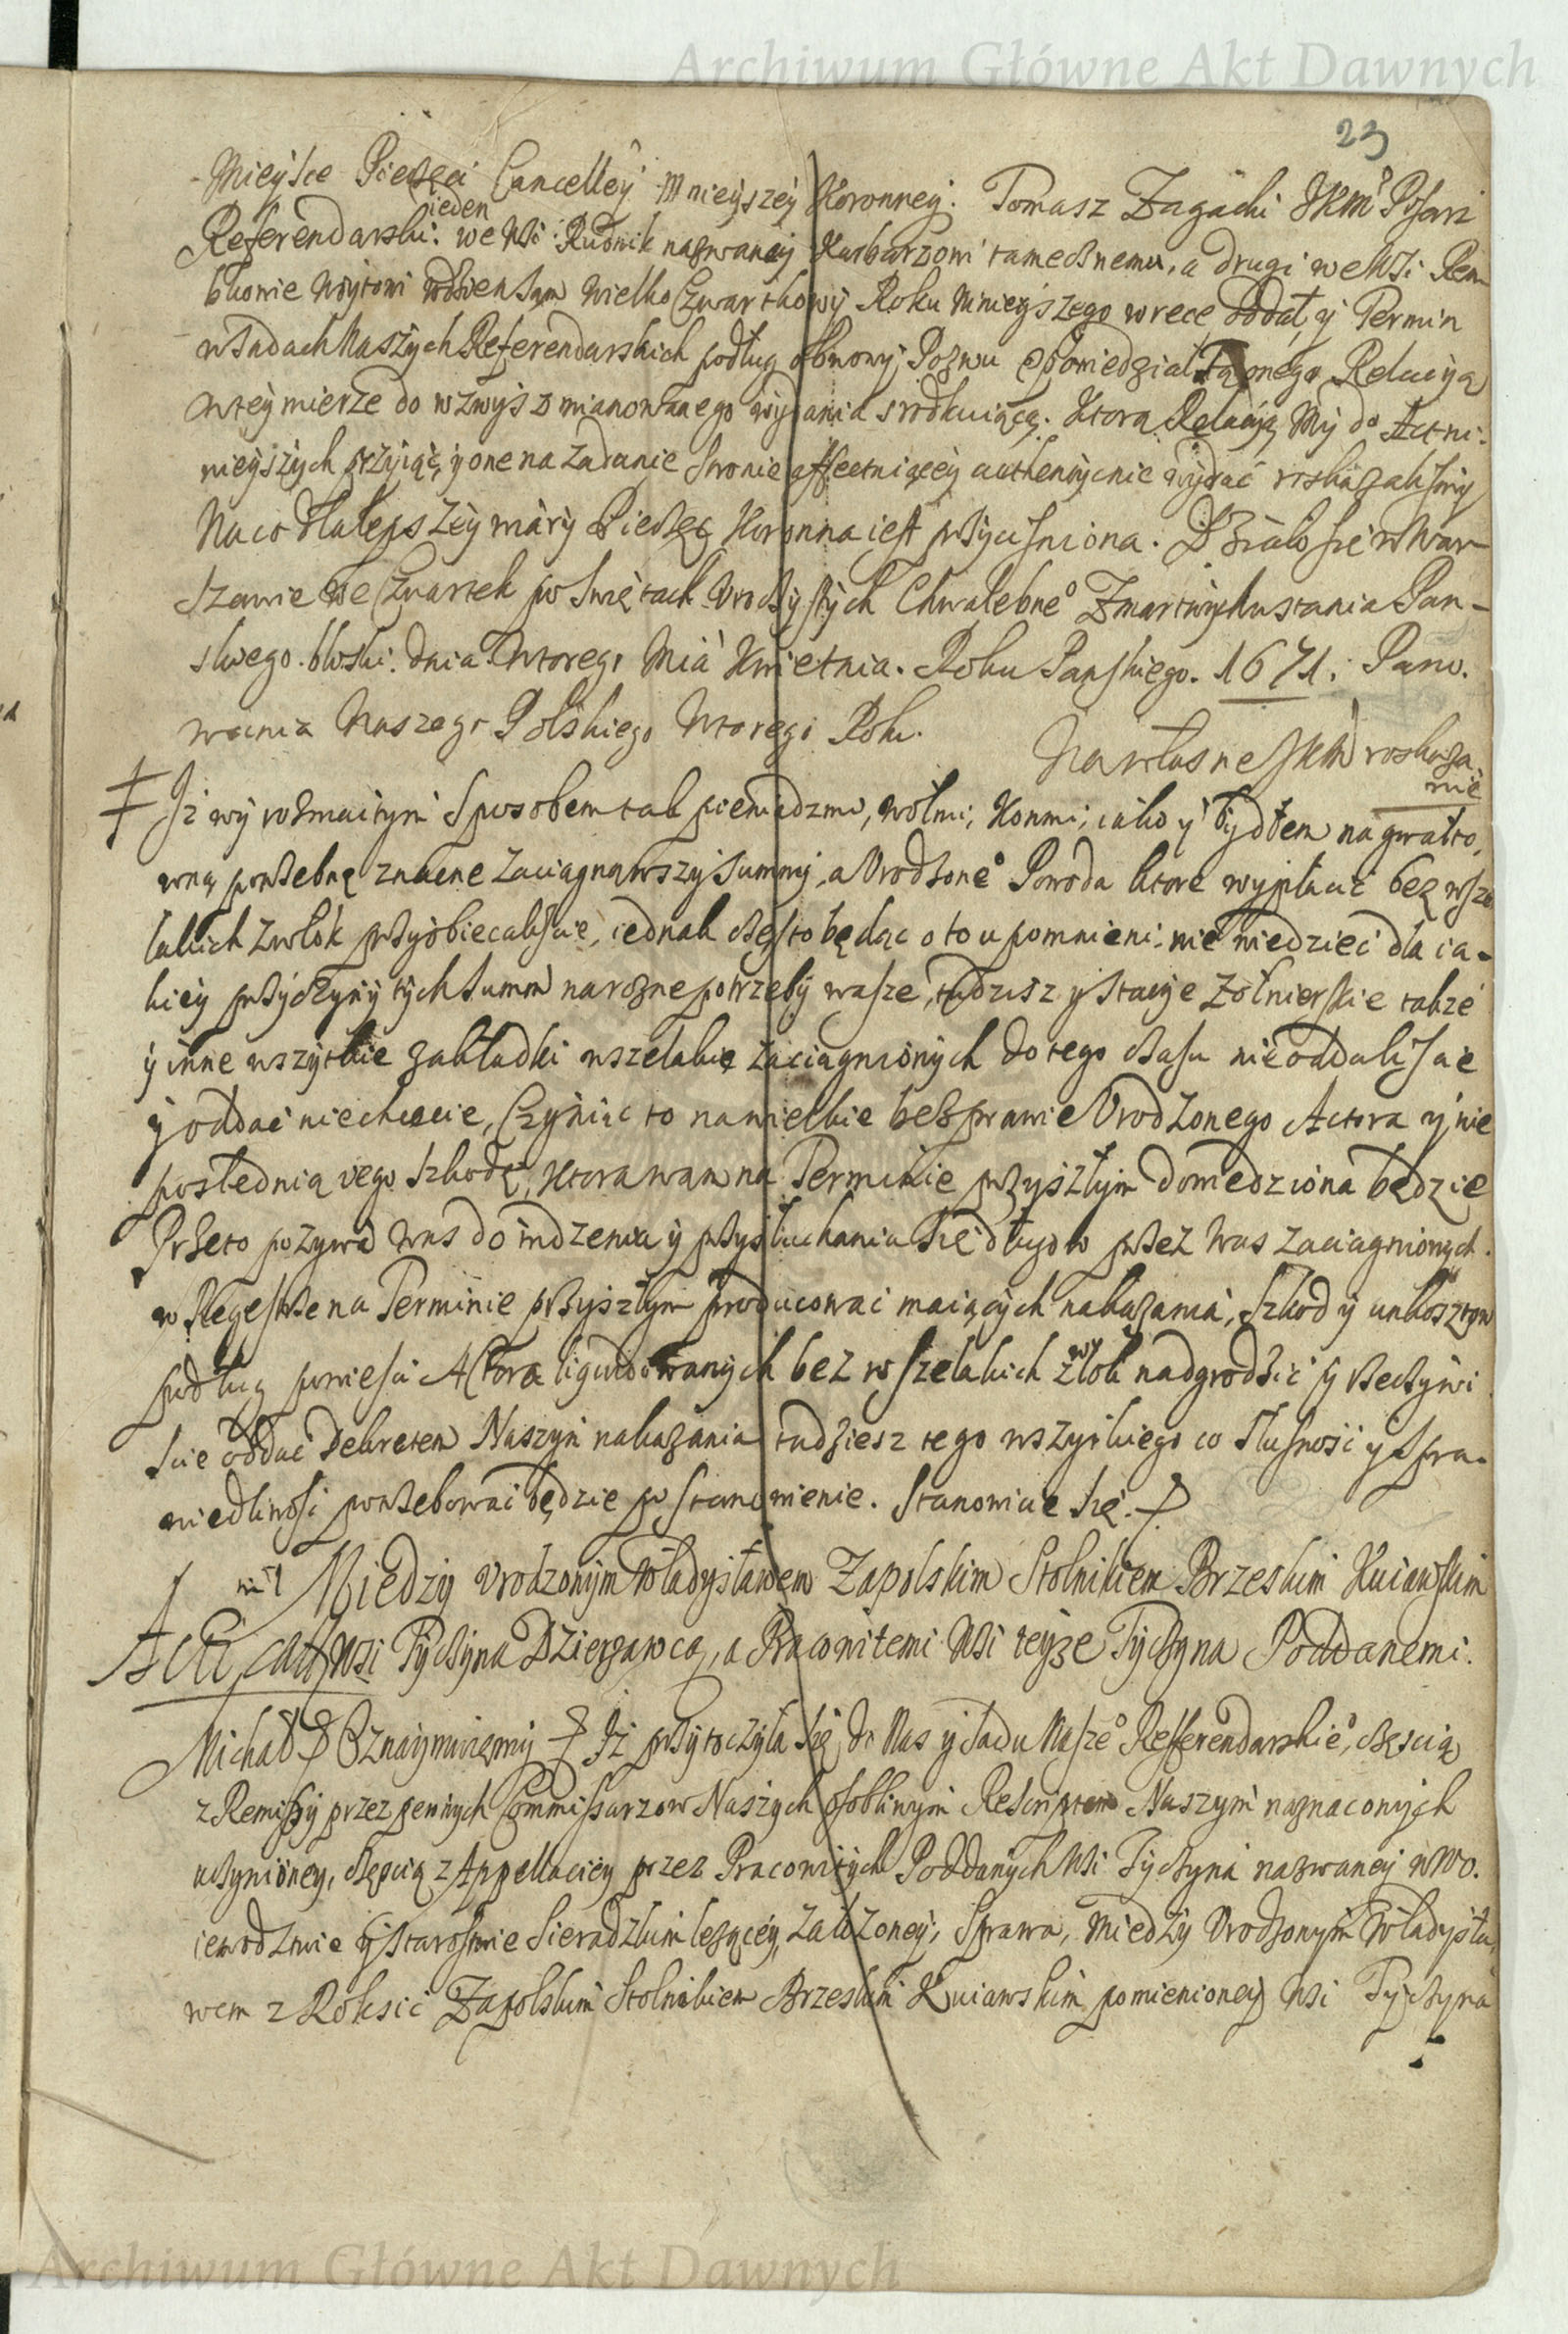 Archiwum Główne Akt Dawnych
23
Mieysce Pieczęci Cancellÿ Mnieyszeÿ Koronneÿ. Tomasz Zagácki JKMᶜⁱ Pisarz
Referendarski. ieden we Wsi Rudnik nazwaneÿ Karbarzowi tamecznemu, a drugi we Wsi Rem
bkowie Woÿtowi w dzien sam Wielko Czwartkowÿ Roku ninieyszego w rece oddał, ÿ Termin
w Sadach Naszÿch Referendarskich podług obmowÿ Pozwu opowiedział Relacÿą
w teÿ mierze do wzwÿs mianowanego srodkuiącą. Ktora Relacÿą Mÿ do Act ni-
nieÿszÿch przÿiąć, ÿ one na żadanie stronie affectuiąceÿ authentÿcznie wÿdać roskazalismÿ
Na co dla lepszeÿ wiarÿ Pieczęć Koronna iest przÿcisniona. Działo się w War-
szawie we Czwartek po Swiętach Vroczÿstÿch Chwalebneᵒ Zmartwÿchwstania Pan-
skiego bliski. dnia Wtorego Mcá Kwietnia. Roku Panskiego. 1671. Pano-
wania Naszego Polskiego Wtorego Roku.
Na własne JKM roskaza
nie
Iż wÿ rozmaitÿm sposobem tak pieniądzmi, wołmi, Konmi, iako ÿ bÿdłem na gwałto-
wną potrzebną znaczne zaciagnąwszÿ summÿ, a Vrodzoneᵒ Powoda ktore wÿpłacić bez wsze
lakich zwłok przÿobiecaliscie, iednak często będąc o to upomnieni, nie wiedzieć dla ia-
kieÿ przÿczÿnÿ tÿch summ na rozne potrzebÿ wasze, tudzisz ÿ stacÿe żołnierskie także
ÿ inne wszÿtkie zakładki wszelakie zaciagnionÿch do tego czasu nie oddaliscie
ÿ oddać niechcecie, Czÿniąc to na wielkie bezprawie Vrodzonego Actora ÿ nie
poslednią iego szkodę, Ktora wam na Terminie przÿszłÿm dowiedziona będzie
Przeto pozÿwa was do widzenia ÿ przÿsłuchania się długow przez was zaciagnionÿch
w Regestrze na Terminie przÿszłÿm producować maiącÿch nakazania, szkod ÿ unkosztow
podług powiesci Actora liquidowanÿch bez wszelakich zwłok nadgrodzić ÿ rzeczÿwi
scie oddać Dekretem Naszÿm nakazania tudziesz tego wszÿstkiego co słusnosć ÿ spra-
wiedliwosć potrzebować będzie postanowienie. Stanowcie się.
Miedzÿ Vrodzonÿm Władÿsławem Zapolskim Stolnikiem Brzeskim Kuiawskim
Wsi Tÿczÿna Dzierzawcą, a Pracowitemi Wsi teÿże Tÿczÿna Poddanemi.
Michał Oznaÿmuiemÿ Iż przÿtoczÿła się do Nas ÿ Sadu Naszeᵒ Refferendarskieᵒ, częscią
z Remissÿ przez pewnÿch Commissarzow Naszÿch osobliwÿm Rescriptem Naszÿm naznaconÿch
uczÿnioneÿ, częscią z Appellacieÿ przez Pracowitÿch Poddanÿch Wsi Tÿczÿna nazwaneÿ w Wo-
iewodztwie ÿ Starostwie Sieradzkim leżąceÿ, założoneÿ, Sprawa, Miedzÿ Vrodzonÿm Władÿsła-
wem z Roksic Zapolskim Stolnikiem Brzeskim Kuiawskim pomienioneÿ Wsi Tÿczÿna
Archiwum Główne Akt Dawnych